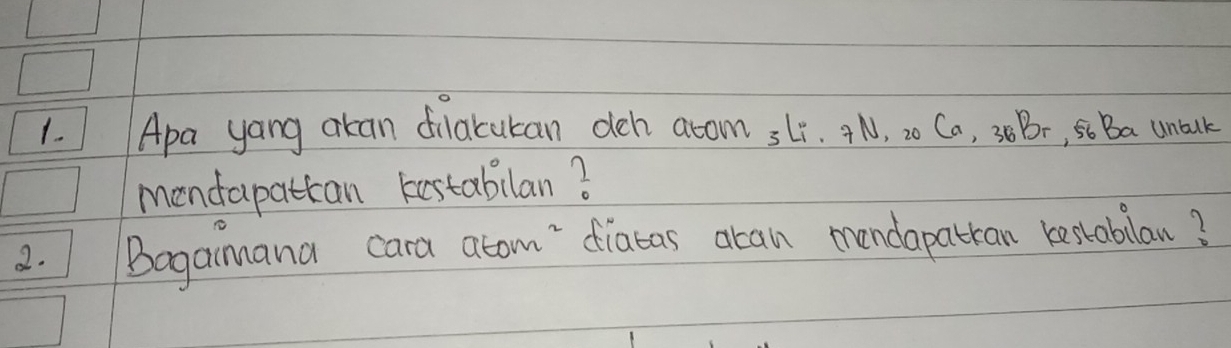 1. Apa yang akan dilakukan oleh atom ₃Li, ₇N, ₂₀Ca, ₃₆Br, ₅₆Ba untuk
mendapatkan kestabilan?
2. Bagaimana cara atom² diatas akan mendapatkan kestabilan?